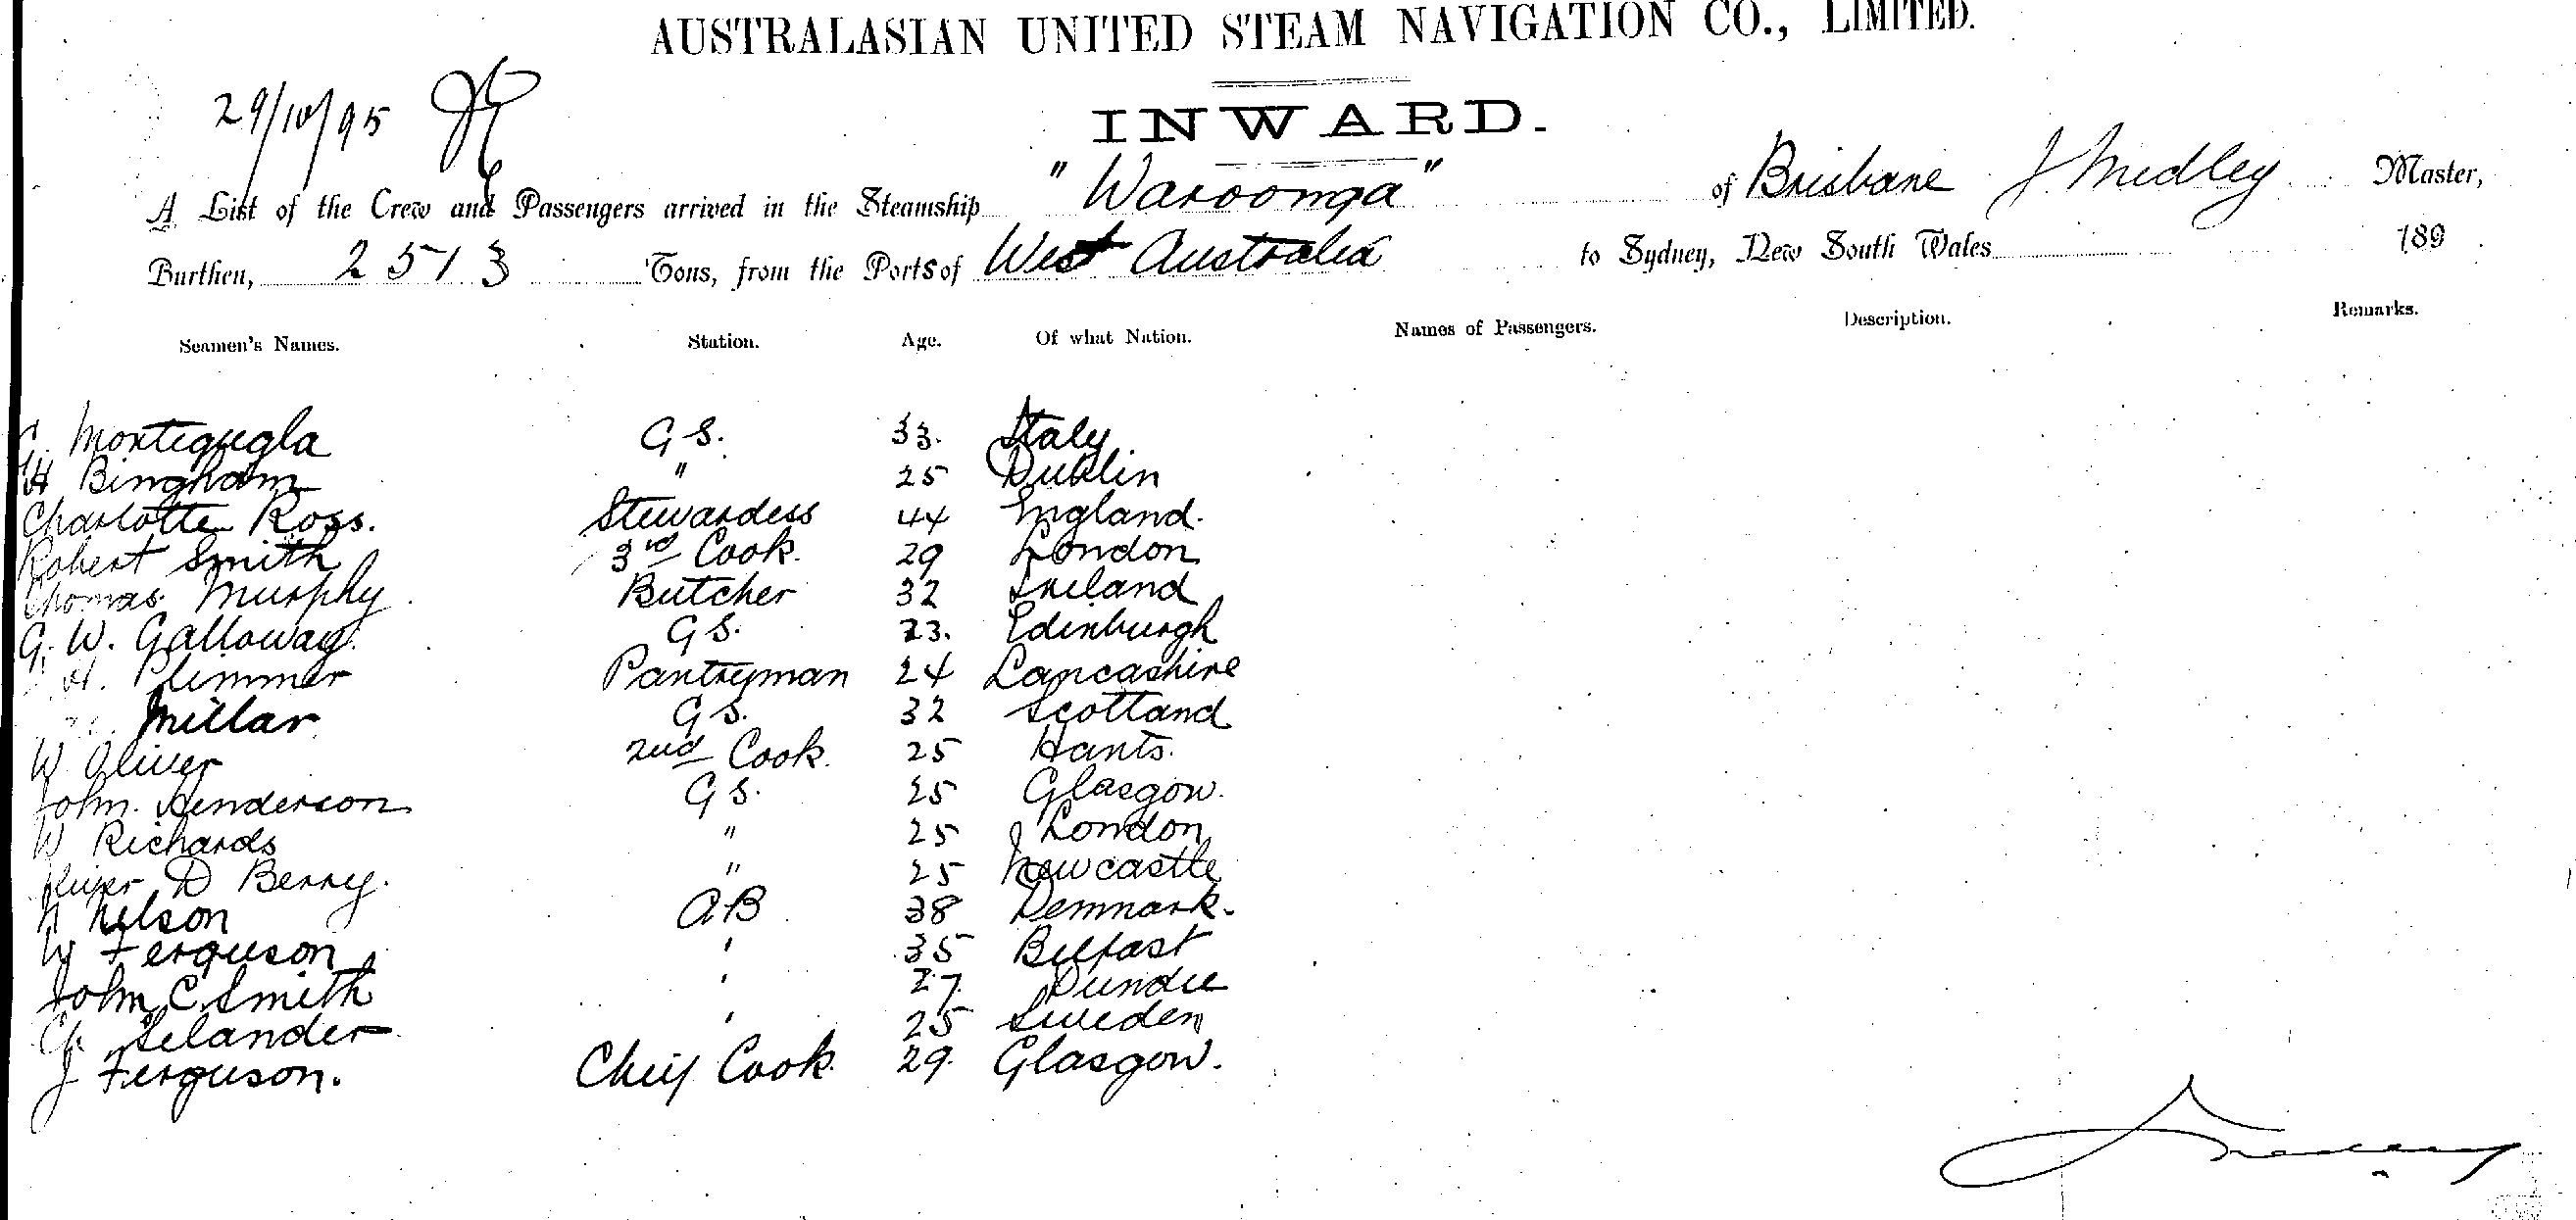 AUSTRALASIAN UNITED STEAM NAVIGATION CO., LIMITED.
29/10/95
INWARD.
A List of the Crew and Passengers arrived in the Steamship "Waroonga" of Brisbane J. Medley Master,
Burthen, 2513 Tons, from the Ports of West Australia to Sydney, New South Wales 189
Seamen's Names. Station. Age. Of what Nation. Names of Passengers. Description. Remarks.
Montequgla G S. 33. Italy
H Bingham " 25 Dublin
Charlotte Ross. Stewardess 44 England.
Robert Smith 3rd Cook. 29 London
Thomas Murphy Butcher 32 Ireland
G. W. Galloway. G S. 23. Edinburgh
H. Plimmer Pantryman 24 Lancashire
Millar G S. 32 Scotland
W Oliver 2nd Cook. 25 Hants.
John Henderson G S. 25 Glasgow.
W Richards " 25 London
D Berry. " 25 Newcastle
N Nelson AB 38 Denmark.
W Ferguson ' 35 Belfast
John C. Smith ' 27. Dundee
Selander ' 25 Sweden
J Ferguson. Chief Cook. 29. Glasgow.